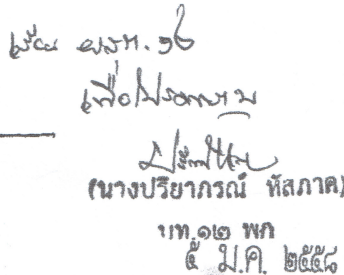 เรียน ผสท.๑๒
เพื่อโปรดทราบ
(นางปริยาภรณ์ หัสภาค)
บท.๑๒ พก
๕ ม.ค. ๒๕๕๘